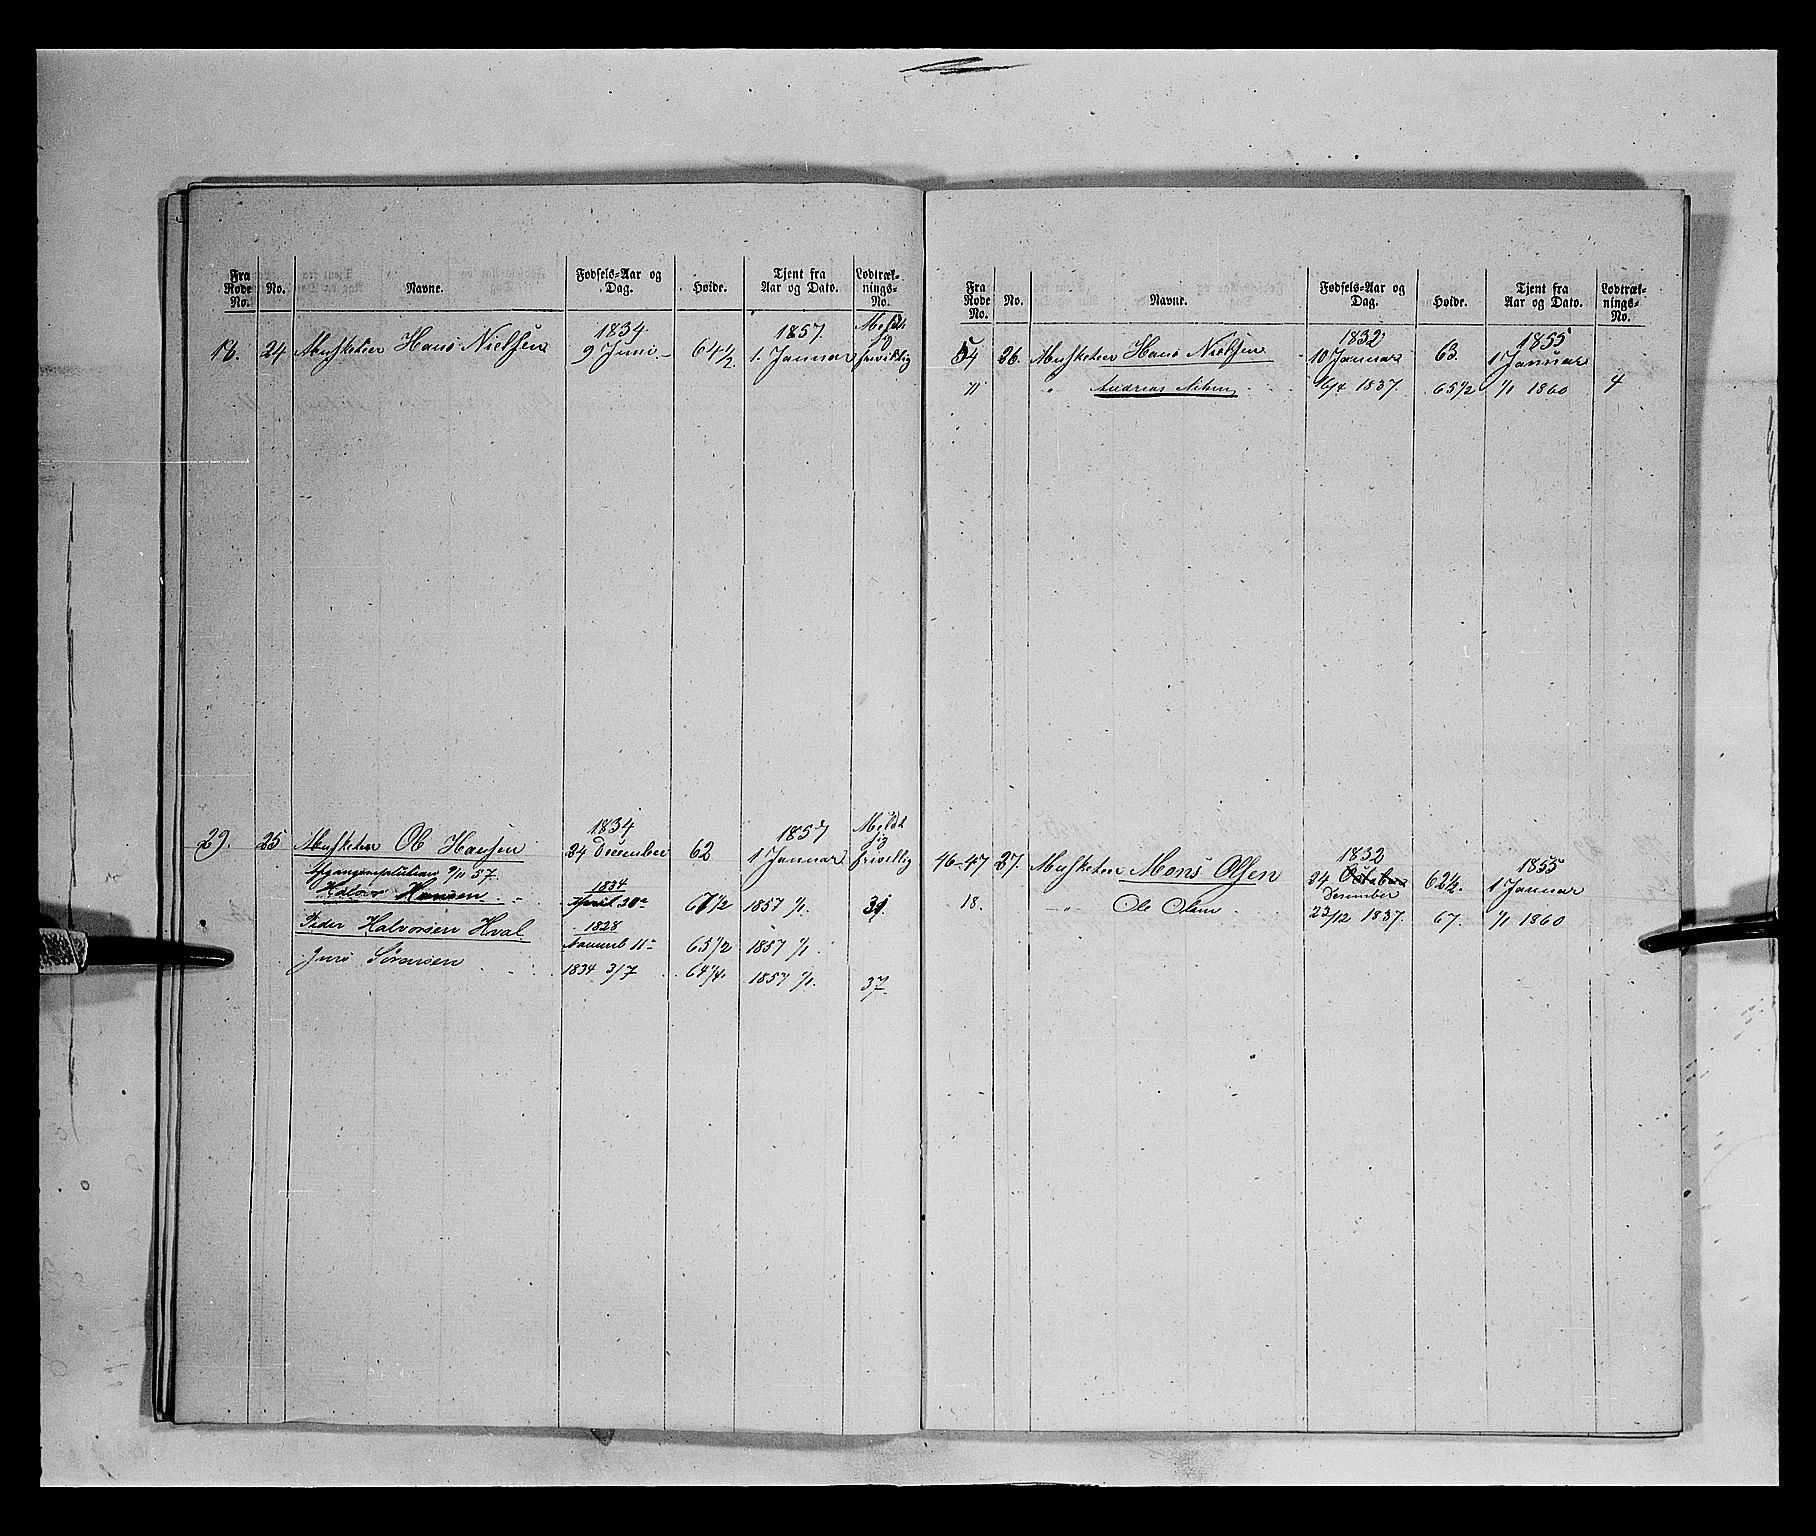 Fra Rode No. | No. | Navne. | Fødsels-Aar og Dag. | Høide. | Tjent fra Aar og Dato. | Lodtræk-nings-No.
16. | 24 | Musketeer Hans Nielsen | 1834 9 Juni | 64 1/2 | 1857. 1. Januar | Meldt sig frivillig
29. | 25 | Musketeer Ole Hansen | 1834 24 December | 62 | 1857 1 Januar | Meldt sig frivillig
Afgangsresolution 9/11 57.
Halvor Hansen | 1834 April 30te | 67 1/2 | 1857 1/1. | 31.
Peder Halvorsen Hval | 1828 Novemb 11te | 65 1/2 | 1857 1/1.
Jens Sörensen | 1834 3/7 | 64 1/4. | 1857 1/1. | 37.
Fra Rode No. | No. | Navne. | Fødsels-Aar og Dag. | Høide. | Tjent fra Aar og Dato. | Lodtræk-nings-No.
54 | 26. | Musketeer Hans Nielsen | 1832 10 Januar | 63. | 1855 1 Januar
11 | " | Andreas | 16/4 1837. | 65 1/2 | 1/1 1860 | 4
46-47 | 27. | Musketeer Mons Olsen | 1832 24 October December | 62 1/2. | 1855 1 Januar
18. | " | Ole Olsen | 23/12 1837. | 67. | 1/1 1860